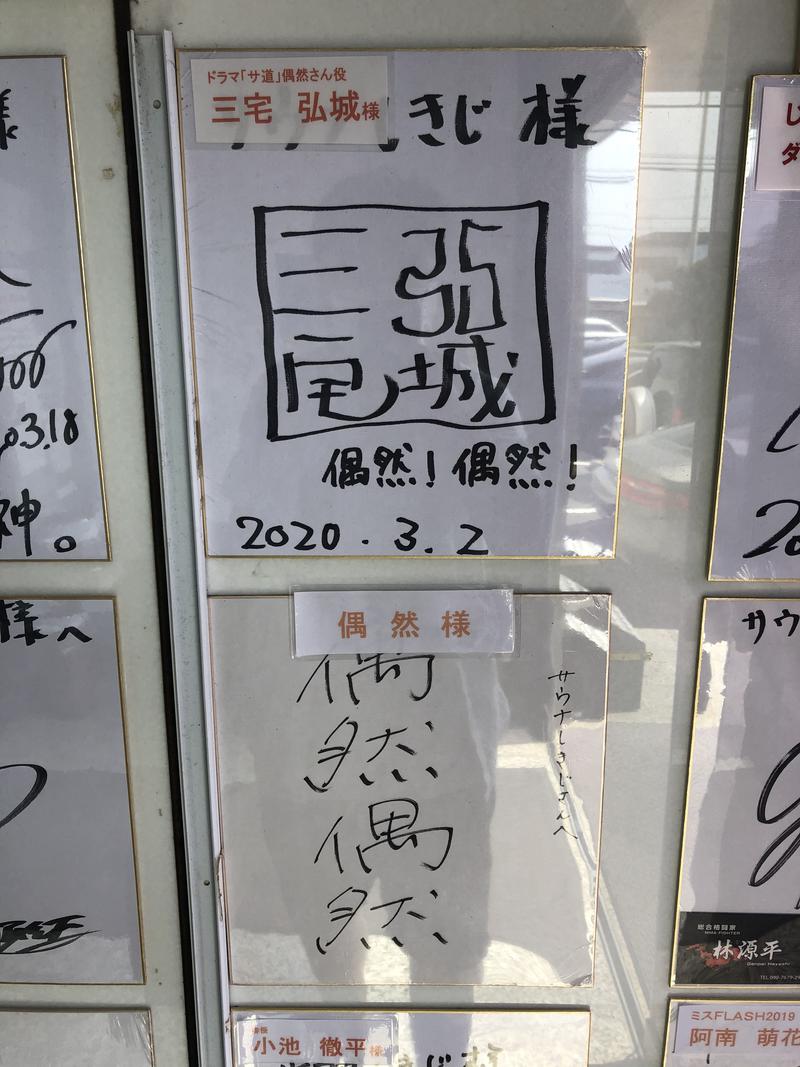 様
03.18
神。
様へ
ドラマ「サ道」偶然さん役
三宅 弘城様
きじ 様
三宅
弘城
偶然！偶然！
2020.3.2
偶然様
サウナしきじさんへ
偶
然
偶
然
小池 徹平様
し
ダ
20
サウ
総合格闘家
MMA FIGHTER
林源平
Genpei Hayashi
ミスFLASH2019
阿南 萌花